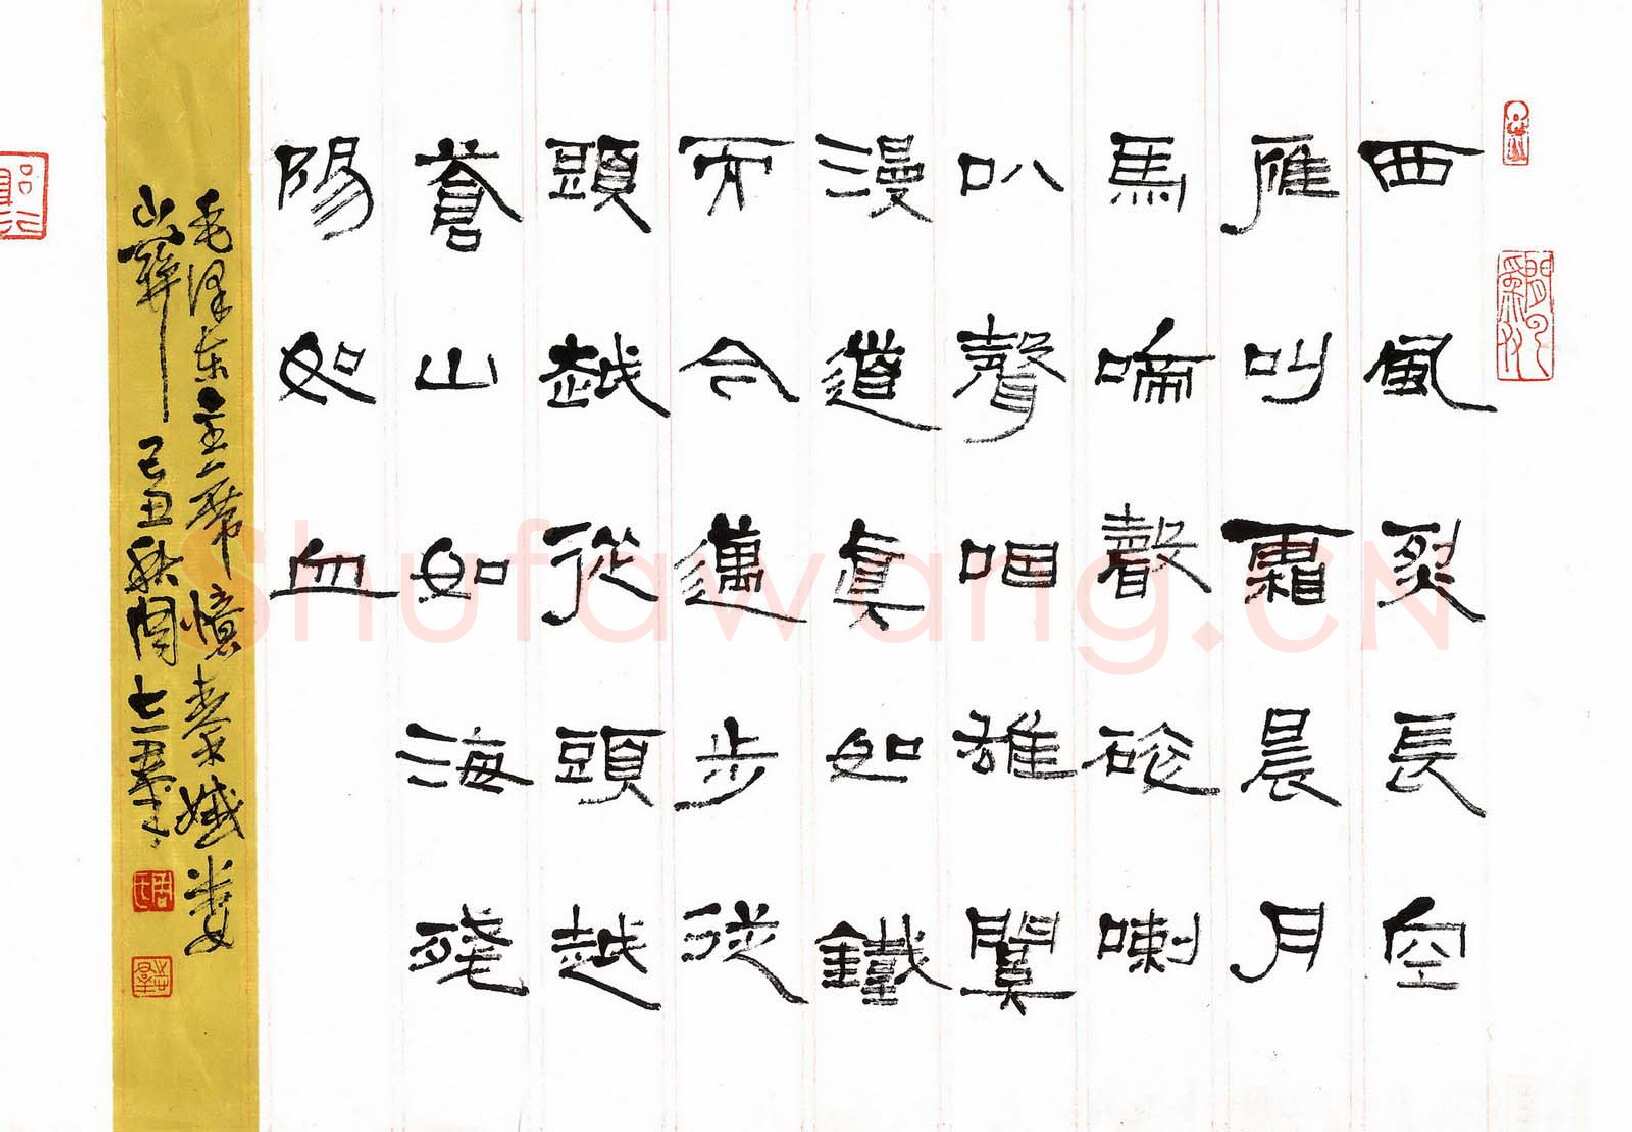 西風烈長空
雁叫霜晨月
馬啼聲碎喇
叭聲咽雄關
漫道真如鐵
而今邁步從
頭越從頭越
蒼山如海殘
陽如血
毛泽东主席憶秦娥娄
山關 己丑秋周
Shufawang.CN